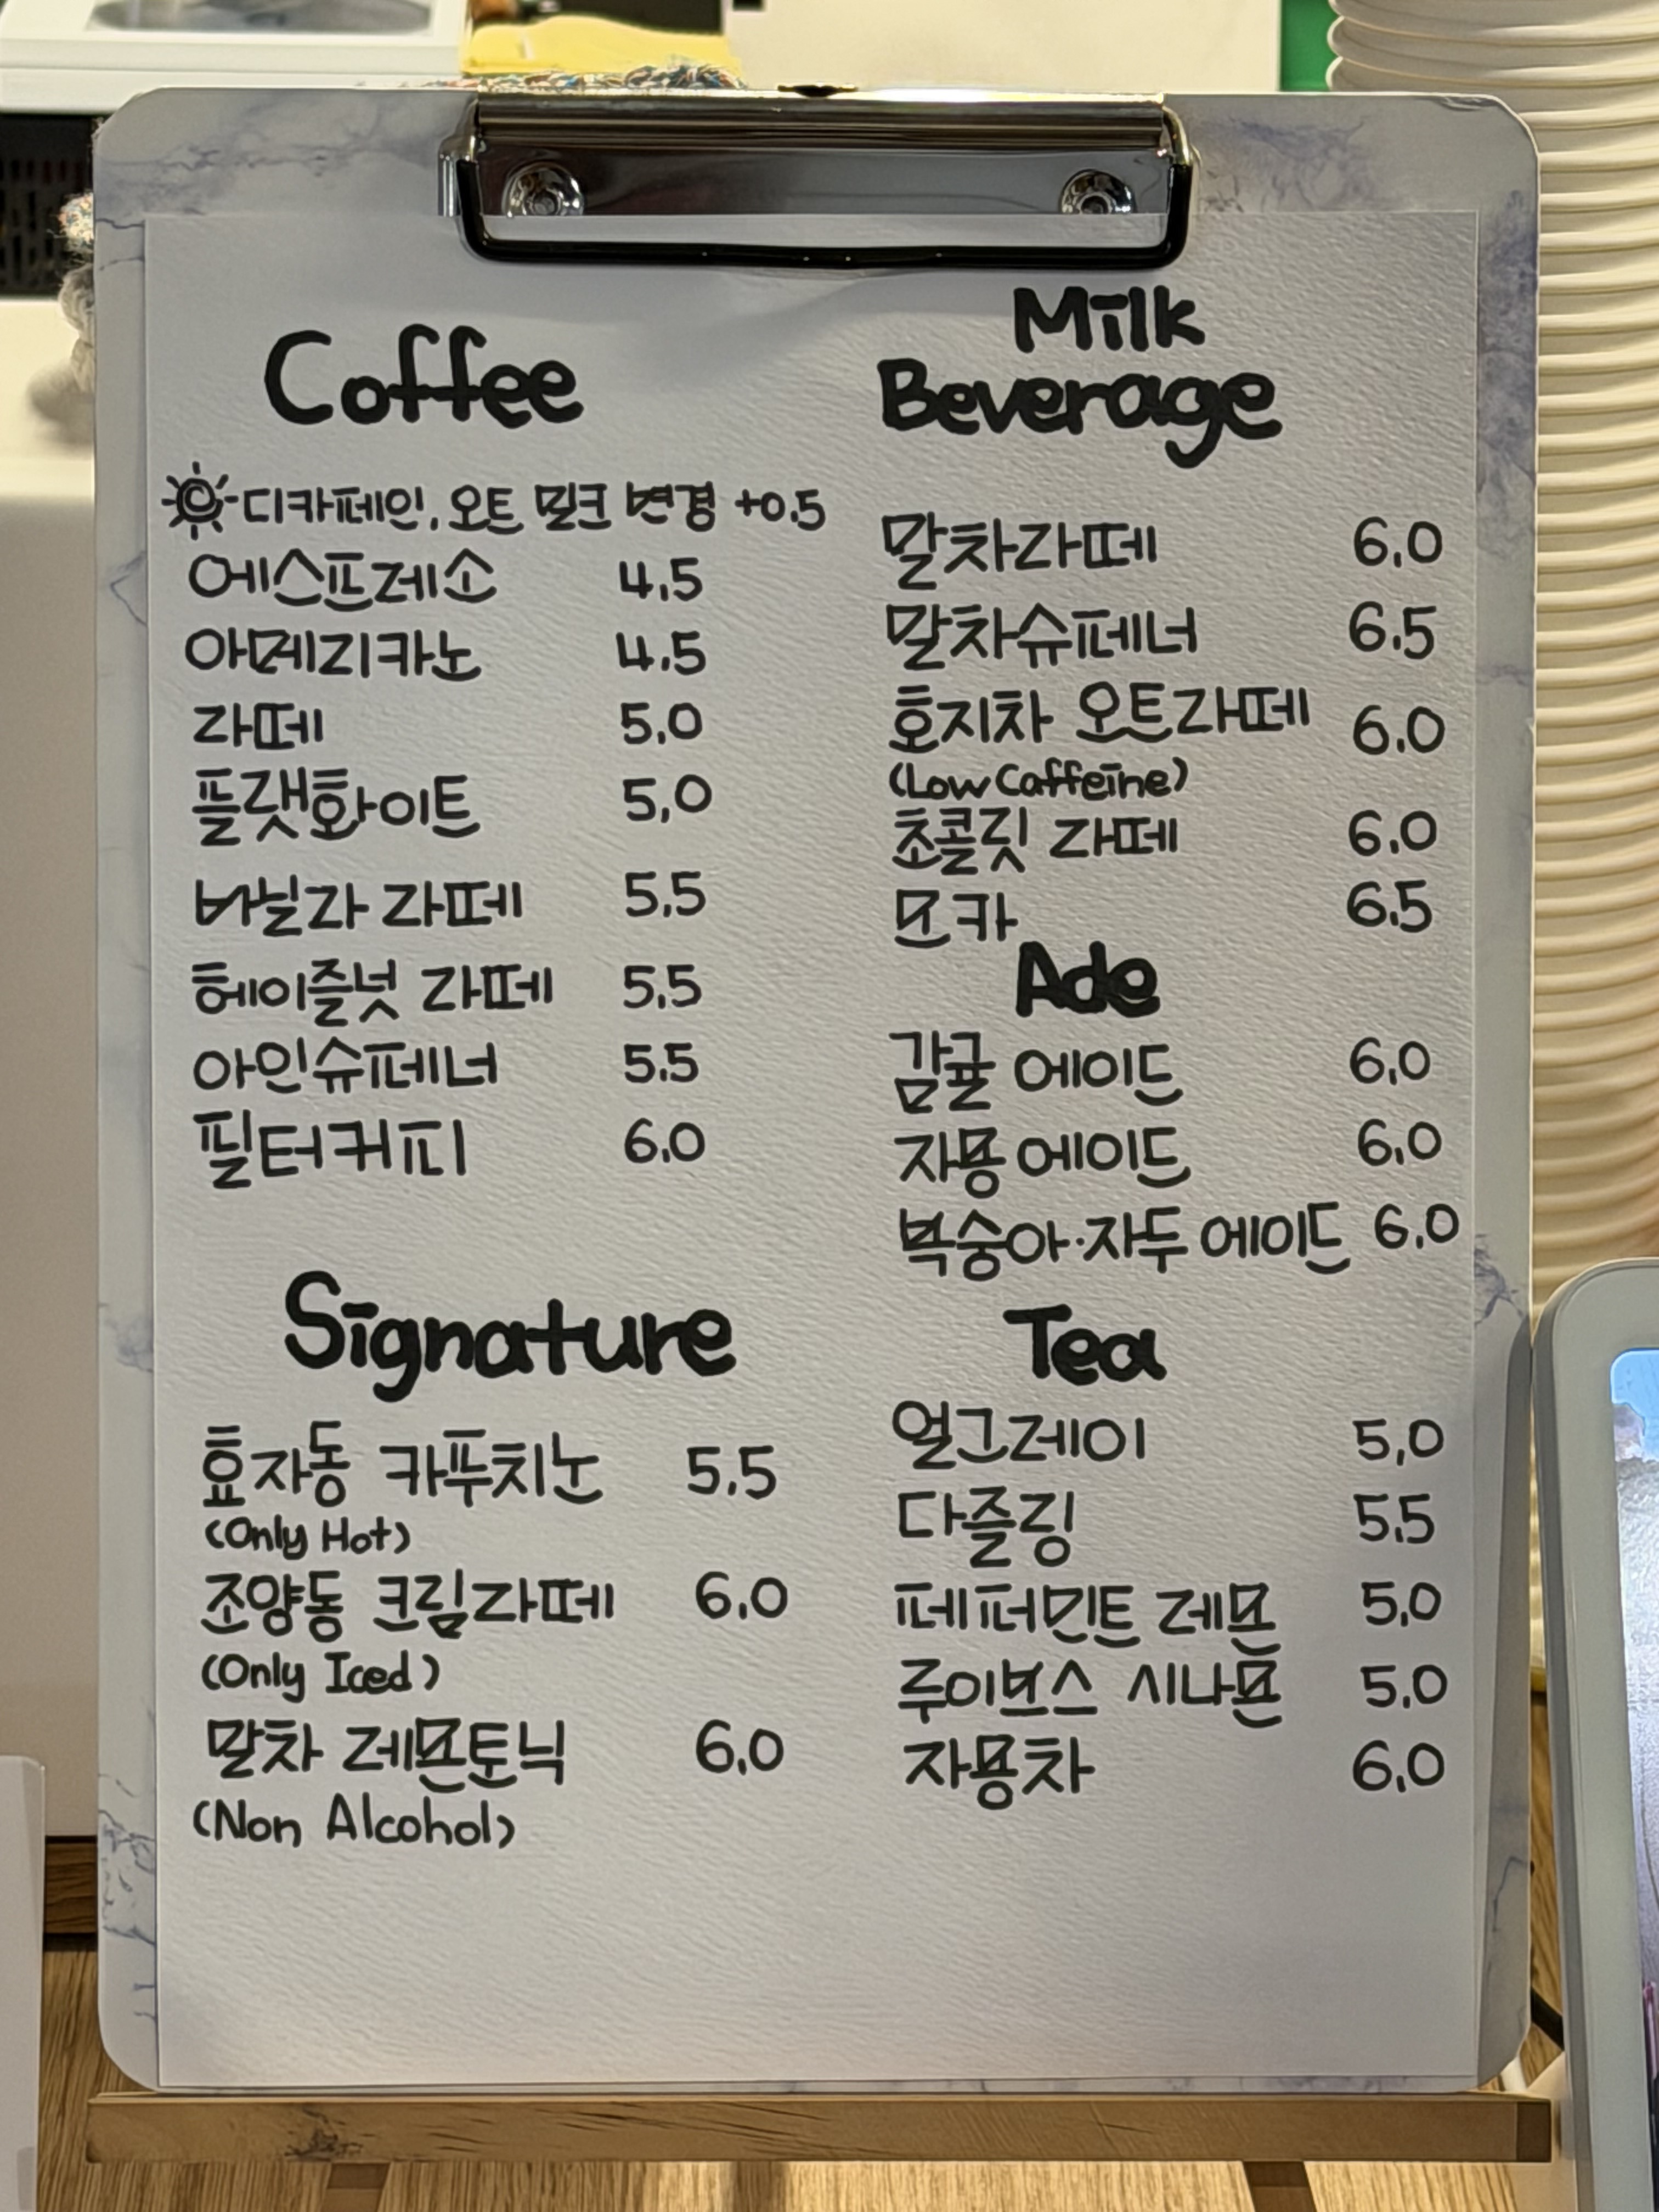 Coffee
디카페인, 오트 밀크 변경 +0.5
에스프레소 4.5
아메리카노 4.5
라떼 5.0
플랫화이트 5.0
바닐라 라떼 5.5
헤이즐넛 라떼 5.5
아인슈페너 5.5
필터커피 6.0
Signature
효자동 카푸치노 5.5
(Only Hot)
조양동 크림라떼 6.0
(Only Iced)
말차 레몬토닉 6.0
(Non Alcohol)
Milk
Beverage
말차라떼 6.0
말차슈페너 6.5
호지차 오트라떼 6.0
(Low Caffeine)
초콜릿 라떼 6.0
모카 6.5
Ade
감귤 에이드 6.0
자몽 에이드 6.0
복숭아·자두 에이드 6.0
Tea
얼그레이 5.0
다즐링 5.5
페퍼민트 레몬 5.0
루이보스 시나몬 5.0
자몽차 6.0